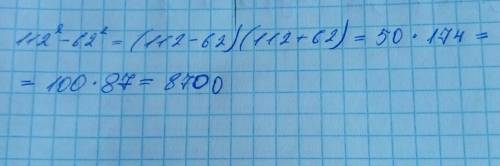 112² - 62² = (112 - 62)(112 + 62) = 50 · 174 =
= 100 · 87 = 8700